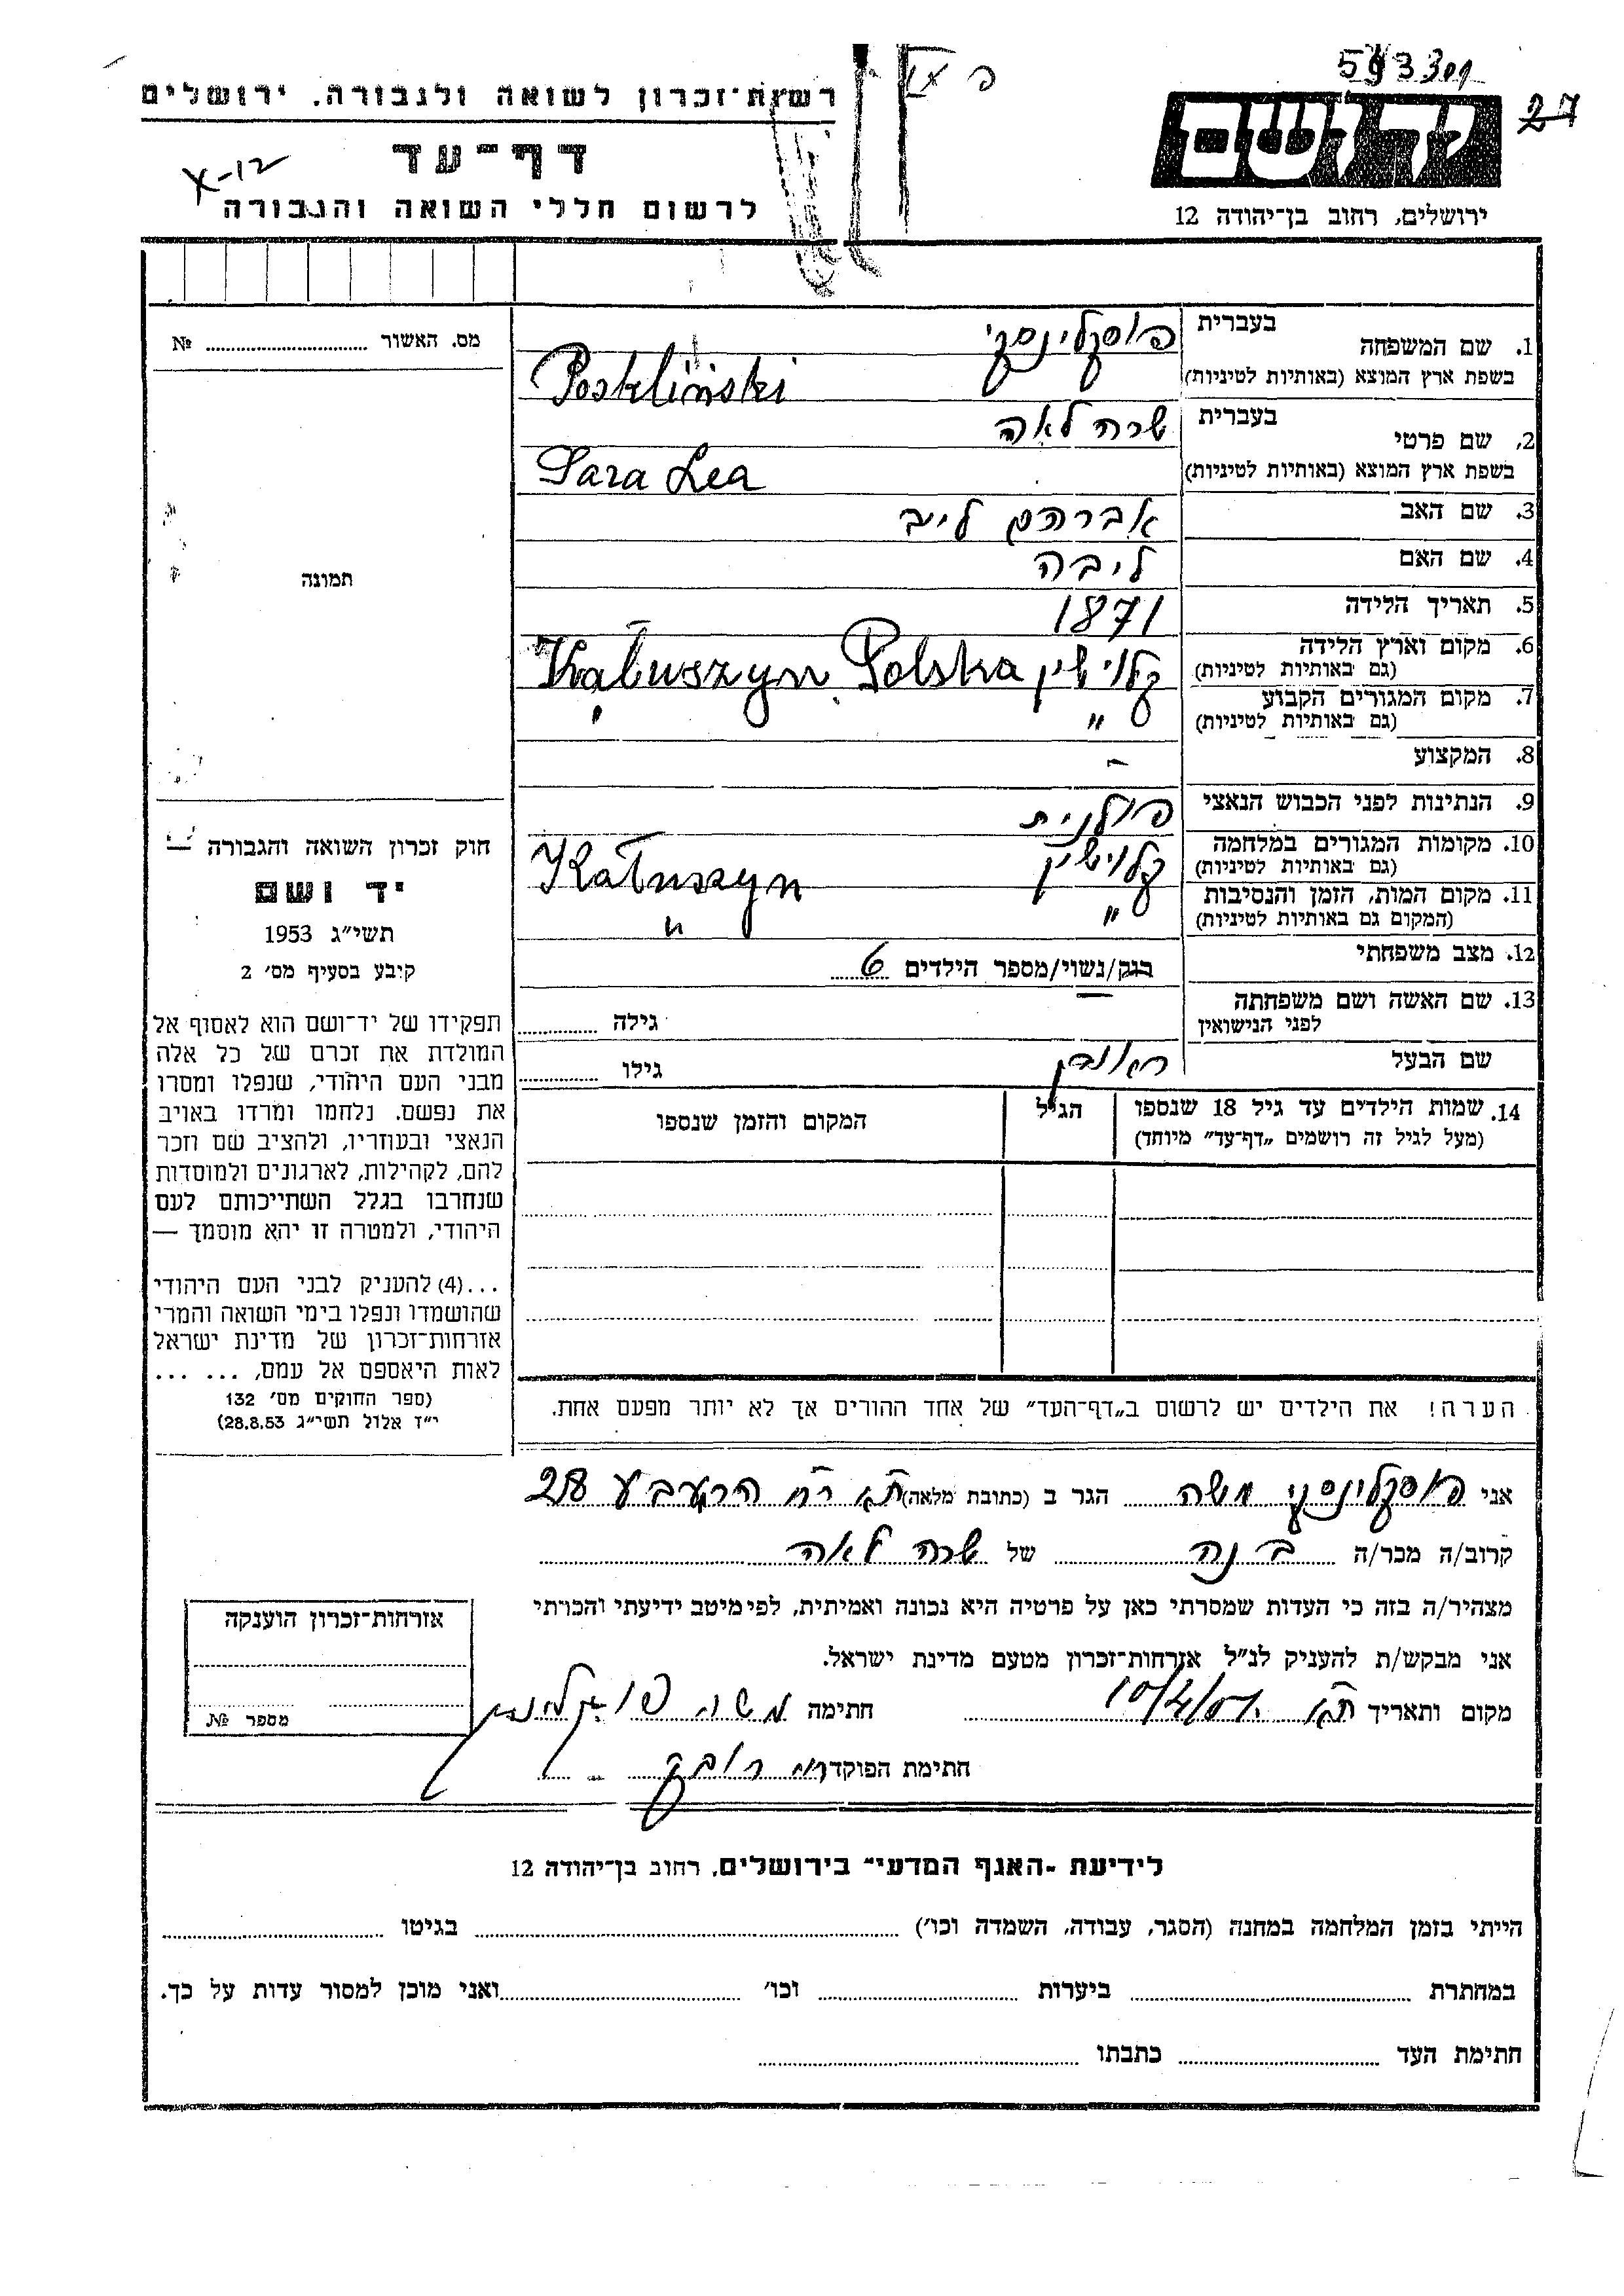 593301
27
פ IX
רשות־זכרון לשואה ולגבורה. ירושלים
דף־עד
X-12
לרשום חללי השואה והגבורה
יד ושם
ירושלים, רחוב בן־יהודה 12
מס. האשור № 
1. שם המשפחה בעברית פוסקלינסקי
בשפת ארץ המוצא (באותיות לטיניות) Poskliński
2. שם פרטי בעברית שרה לאה
בשפת ארץ המוצא (באותיות לטיניות) Sara Lea
3. שם האב אברהם ליב
4. שם האם ליבה
5. תאריך הלידה 1871
6. מקום וארץ הלידה (גם באותיות לטיניות) קלושין Kałuszyn Polska
7. מקום המגורים הקבוע (גם באותיות לטיניות) " "
8. המקצוע –
9. הנתינות לפני הכבוש הנאצי פולנית
10. מקומות המגורים במלחמה (גם באותיות לטיניות) קלושין Kałuszyn
11. מקום המות, הזמן והנסיבות (המקום גם באותיות לטיניות) " "
12. מצב משפחתי רווק/נשוי/מספר הילדים 6
13. שם האשה ושם משפחתה לפני הנישואין – גילה
שם הבעל ראובן גילו
14. שמות הילדים עד גיל 18 שנספו הגיל המקום והזמן שנספו
(מעל לגיל זה רושמים „דף־עד״ מיוחד)
הערה! את הילדים יש לרשום ב„דף־העד״ של אחד ההורים אך לא יותר מפעם אחת.
תמונה
חוק זכרון השואה והגבורה —
יד ושם
תשי״ג 1953
קיבע בסעיף מס׳ 2
תפקידו של יד־ושם הוא לאסוף אל
המולדת את זכרם של כל אלה
מבני העם היהודי, שנפלו ומסרו
את נפשם. נלחמו ומרדו באויב
הנאצי ובעוזריו, ולהציב שם וזכר
להם, לקהילות, לארגונים ולמוסדות
שנחרבו בגלל השתייכותם לעם
היהודי, ולמטרה זו יהא מוסמך —
...(4) להעניק לבני העם היהודי
שהושמדו ונפלו בימי השואה והמרי
אזרחות־זכרון של מדינת ישראל
לאות היאספם אל עמם, ... ...
(ספר החוקים מס׳ 132
י״ד אלול תשי״ג 28.8.53)
אני פוסקלינסקי משה הגר ב (כתובת מלאה) ת״א רח 28
קרוב/ה מכר/ה בנה של שרה לאה
מצהיר/ה בזה כי העדות שמסרתי כאן על פרטיה היא נכונה ואמיתית, לפי מיטב ידיעתי והכרתי
אני מבקש/ת להעניק לנ״ל אזרחות־זכרון מטעם מדינת ישראל.
מקום ותאריך ת״א חתימה משה
חתימת הפוקד
אזרחות־זכרון הוענקה
מספר №
לידיעת „האגף המדעי״ בירושלים, רחוב בן־יהודה 12
הייתי בזמן המלחמה במחנה (הסגר, עבודה, השמדה וכו׳) בגיטו
במחתרת ביערות וכו׳ ואני מוכן למסור עדות על כך.
חתימת העד כתבתו